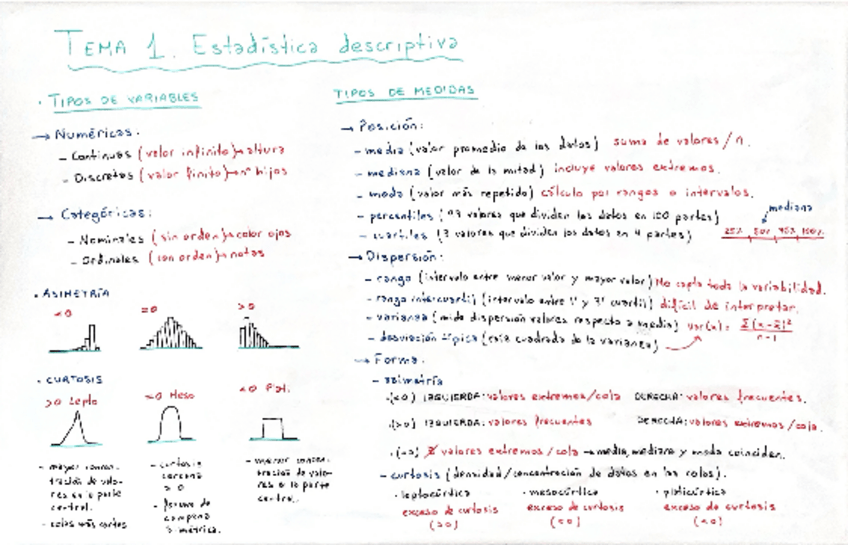 TEMA 1. Estadística descriptiva
· TIPOS DE VARIABLES
→ Numéricas:
- Continuas (valor infinito)→altura
- Discretas (valor finito)→nº hijos
→ Categóricas:
- Nominales (sin orden)→color ojos
- Ordinales (con orden)→notas
· ASIMETRÍA
<0 =0 >0
· CURTOSIS
>0 Lepto =0 Meso <0 Plat.
- mayor concen-
tración de valo-
res en la parte
central.
- colas más cortas
- curtosis
cercana
a 0
- forma de
campana
simétrica.
- menor concen-
tración de valo-
res en la parte
central.
TIPOS DE MEDIDAS
→ Posición:
- media (valor promedio de los datos) suma de valores/n.
- mediana (valor de la mitad) incluye valores extremos.
- moda (valor más repetido) cálculo por rangos o intervalos.
- percentiles (99 valores que dividen los datos en 100 partes)
- cuartiles (3 valores que dividen los datos en 4 partes)
mediana
25% 50% 75% 100%
→ Dispersión:
- rango (intervalo entre menor valor y mayor valor) No capta toda la variabilidad.
- rango intercuartil (intervalo entre 1º y 3º cuartil) difícil de interpretar.
- varianza (mide dispersión valores respecto a media) var(x) = Σ(x-x̄)² / n-1
- desviación típica (raíz cuadrada de la varianza)
→ Forma:
- asimetría
·(<0) IZQUIERDA: valores extremos/cola DERECHA: valores frecuentes.
·(>0) IZQUIERDA: valores frecuentes DERECHA: valores extremos/cola.
·(=0) ∄ valores extremos/cola → media, mediana y moda coinciden.
- curtosis (densidad/concentración de datos en las colas).
· leptocúrtica · mesocúrtica · platicúrtica
exceso de curtosis exceso de curtosis exceso de curtosis
(>0) (=0) (<0)